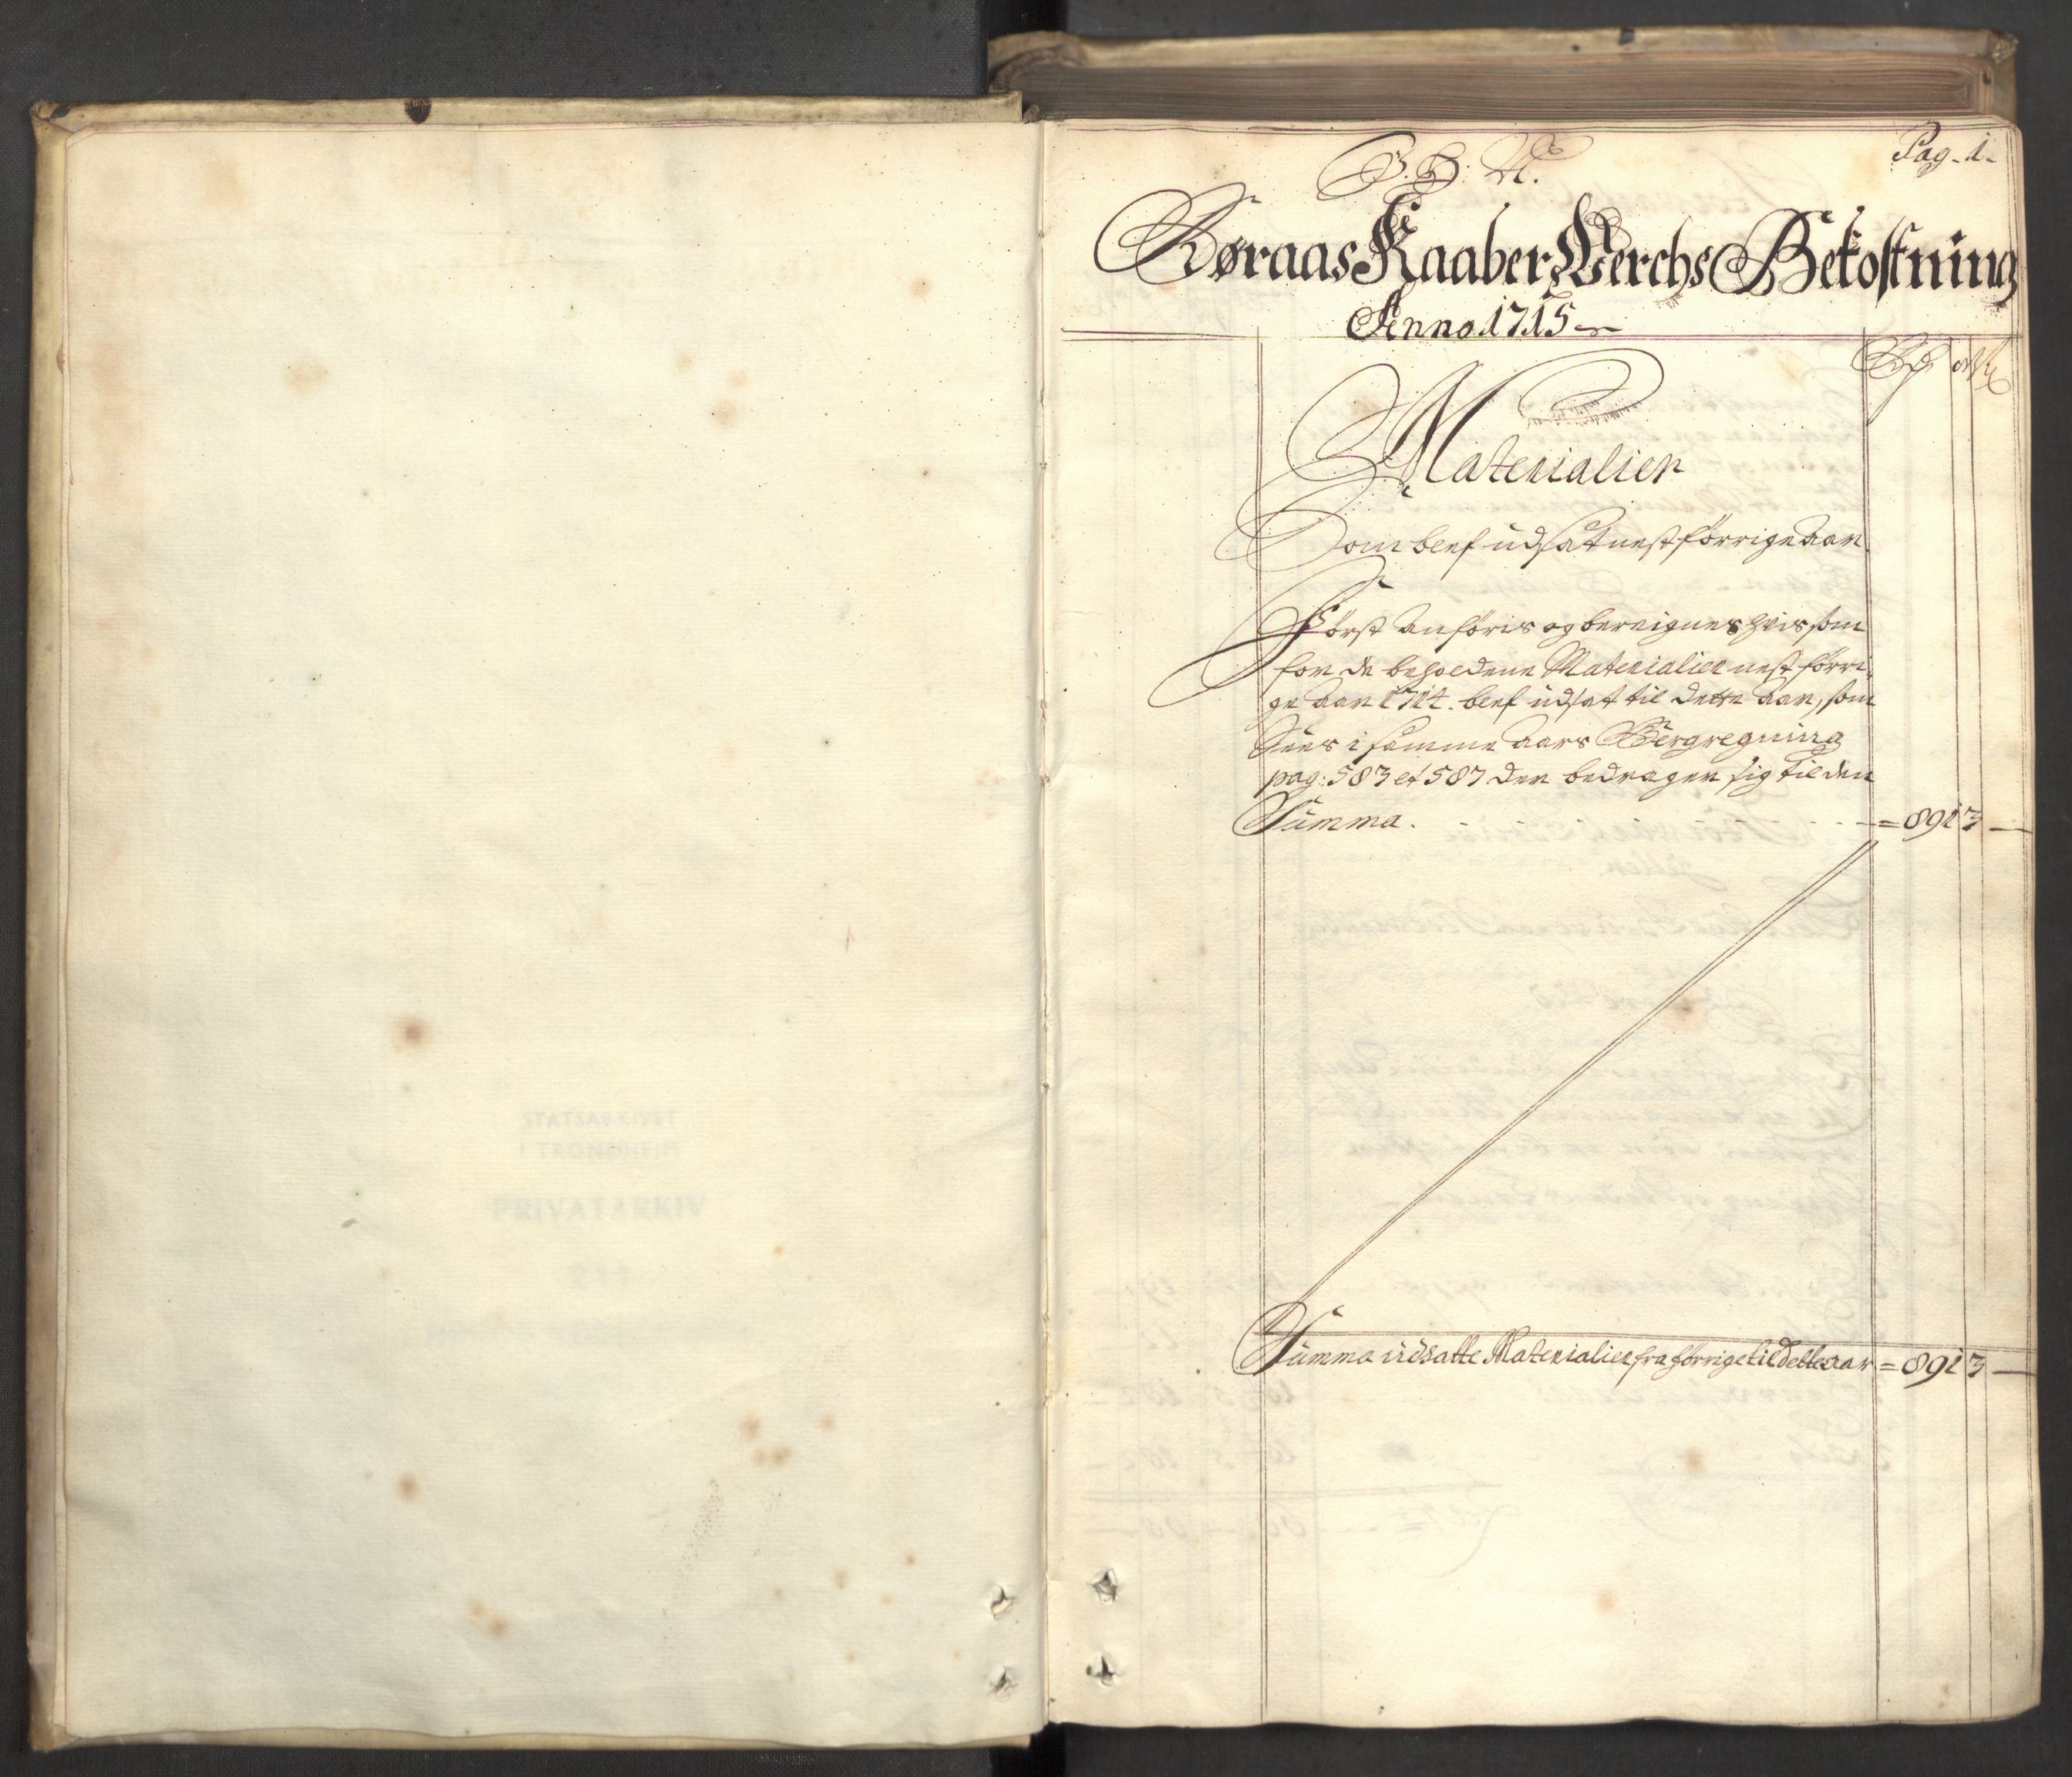 Pag. 1.
J. H. N.
Røraas Kaaber Werchs Bekostning
Anno 1715
Rdr
Materialier
Som blef udsat nest forrige Aar
Først anføris og bereignes hvis som
for de beholdene Materialier nest forri-
ge Aar 1714. blef udsat til dette Aar, som
Sees i samme Aars Bergregning
pag: 583 et 587 der bedrager sig til den
Summa. = 8913 —
Summa udsatte Materialier fra forrige til dette aar = 8913 —
STATSARKIVET
I TRONDHEIM
PRIVATARKIV
211